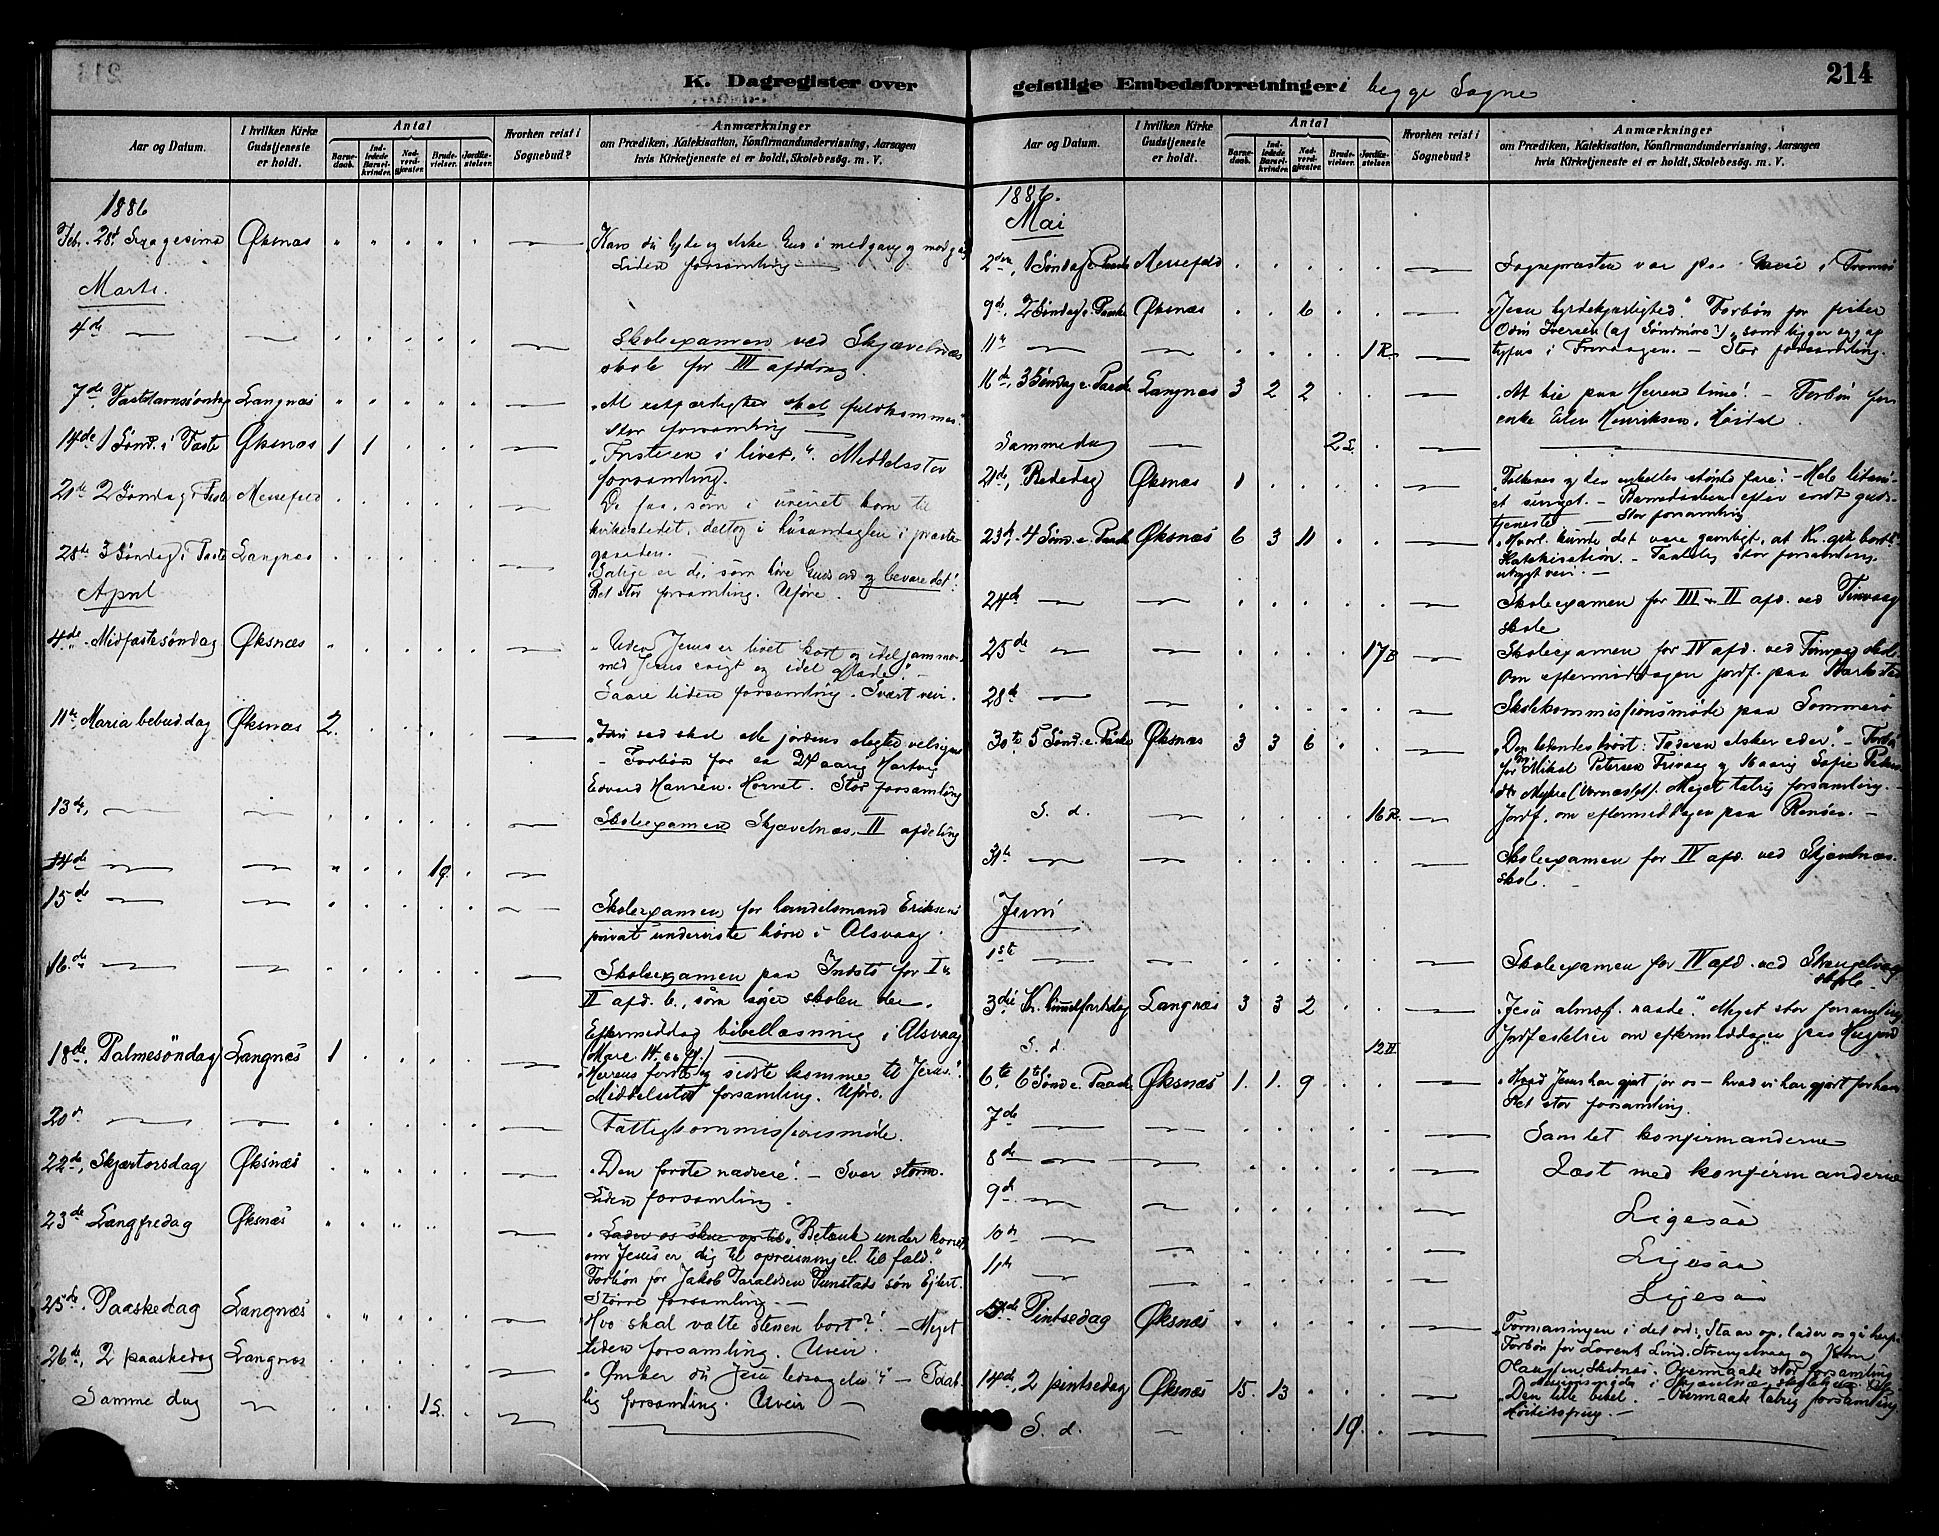 K. Dagregister over
Aar og Datum.
I hvilken Kirke Gudstjeneste er holdt.
Antal
Barnedaab.
Indledede Barselkvinder.
Nadverdgjester.
Brudevielser.
Jordfæstelser.
Hvorhen reist i Sognebud?
Anmærkninger
om Prædiken, Katekisation, Konfirmandundervisning, Aarsagen
hvis Kirketjeneste ei er holdt, Skolebesøg. m. V.
1886
Febr. 28de Øksnæs
Kan du lyde og elske Gud i medgang og modgang
Liden forsamling
Marts.
4de
Skoleexamen ved Skjævelnæs
skole for III afdeling.
7de Fastelavnssøndag Langnæs
„Al retfærdighed skal fuldkommes."
Stor forsamling
14de 1 Sønd. i Faste Øksnæs 1 1
„Fristeren i livet." Middelsstor
forsamling.
21de 2 Søndag i Faste
De faa, som i uveiret kom til
kirkestedet, deltog i husandagten i præste-
gaarden.
28de 3 Søndag i Faste Langnæs
„Salige er de, som høre Guds ord og bevare det!
Ret stor forsamling. Uføre.
April
4de Midfastesøndag Øksnæs
„Uden Jesus er livet kort og idel jammer
med Jesus evigt og idel glæde."
Saare liden forsamling. Svært veir.
11te Maria bebud.dag Øksnæs 2.
skal alle jordens slegter velsignes
- Forbøn for en 24 aarig Hartvig
Edvard Hansen. Hornet. Stor forsamling
13de,
Skoleexamen Skjævelnæs, II afdeling
14de 1Ø.
15de
Skoleexamen for handelsmand Eriksens
privat underviste børn i Alsvaag.
16de
Skoleexamen paa for I &
II afd. b., som søger skolen der.
Eftermiddag bibellæsning i Alsvaag
18de. Palmesøndag Langnæs 1
„Herrens første og sidste komme til Jerus."
Middelsstor forsamling. Uføre.
20de
Fattigkommissionsmøde.
22de, Skjærtorsdag Øksnæs
„Den første nadvere! - Svær storm.
Liden forsamling.
23de Langfredag Øksnæs
„Lader os skue op til „Betænk under korset
om Jesus er dig til opreisning el. til fald."
Forbøn for Jakob Taraldsen Tunstads søn Ejlert.
Større forsamling.
25de. Paaskedag Langnæs
Hvo skal vælte stenen bort?! - Meget
liden forsamling. Uveir.
26de, 2 paaskedag Langnæs
„Ønsker du Jesu ledsagelse?" - Taale-
lig forsamling. Uveir
Samme dag 1L.
geistlige Embedsforretninger i begge Sogne
214
Aar og Datum.
I hvilken Kirke Gudstjeneste er holdt.
Antal
Barnedaab.
Indledede Barselkvinder.
Nadverdgjester.
Brudevielser.
Jordfæstelser.
Hvorhen reist i Sognebud?
Anmærkninger
om Prædiken, Katekisation, Konfirmandundervisning, Aarsagen
hvis Kirketjeneste ei er holdt, Skolebesøg. m. V.
1886.
Mai
2den, 1 Søndag e. Paaske
Sognepræsten var paa i Tromsø
9de, 2 Søndag e. Paaske Øksnæs 6
„Jesu hyrdekjærlighed." Forbøn for fisker
Odin Iversen (af Søndmøre?), som ligger syg af
tyfus i Tinvaagen. - Stor forsamling.
11te 1R.
16de, 3 Søndag e. Paaske Langnæs 3 2 2
„At bie paa Herren time! - Forbøn for
enke Elen Henriksen,
Samme dag 2L.
21de, Bededag Øksnæs 1
Folkenes og den enkeltes største fare! - Hele litani-
et sunget. - Barnedaaben efter endt guds-
tjeneste - Stor forsamling
23de - 4 Sønd. e. Paaske Øksnæs 6 3 11
„Hvorl. kunde det være gavnligt, at Kr. gik bort?
Katekisation. - Taalelig stor forsamling.
utrygt veir. -
24de
Skoleexamen for III & II afd. ved Tinvaag
skole
25de 17B
Skoleexamen for IV afd. ved Tinvaag skole
Om eftermiddagen jordf. paa Barkestad
28de
Skolekommissionsmøde paa Sommerø
30te 5 Sønd. e. Paaske Øksnæs 3 3 6
„Den bedendes trøst: Faderen elsker eder." - Forbøn
for Mikal Petersen Tinvaag og 16aarig Sofie
Myhre Meget talrig forsamling. -
S. d. 16R.
Jordf. om eftermiddagen paa Renøen. -
31te
Skoleexamen for IV afd. ved Skjævelnæs
skole. -
Juni
1ste
Skoleexamen for IV afd. ved Strengelvaag
skole.
3die Kr. himmelfartsdag Langnæs 3 3 2
„Jesu almagt, naade". Meget stor forsamling
S. d. 12
Jordfæstelser om eftermiddagen paa
6te. 6te Sønd e. Paaske Øksnæs 1. 1. 9
„Hvad Jesus har gjort for os - hvad vi har gjort for ham
Ret stor forsamling.
7de
Samlet konfirmanderne
8de
Læst med konfirmanderne
9de
Ligesaa
10de
Ligesaa
11te
Ligesaa
13de Pintsedag Øksnæs
„Formaningen i det ord: Staar op, lader os gå herfra
Forbøn for Lorents Lind. Strengelvaag og
Skotnæs. Overmaade stor forsamling
14de, 2 pintsedag Øksnæs 15. 13
„Den lille bibel. - Overmaade talrig forsamling
S. d. 1Ø.